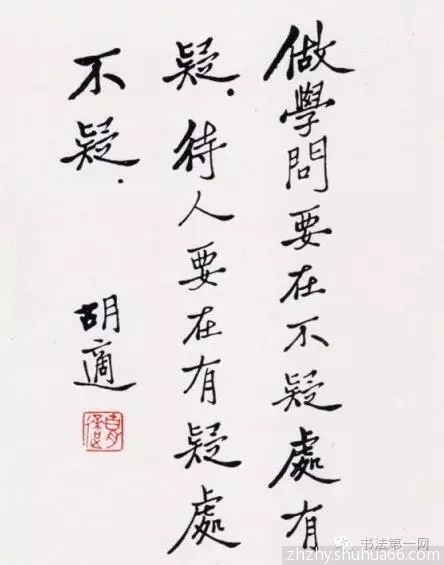 做學問要在不疑處有
疑.待人要在有疑處
不疑.
胡適
书法第一网
zhzhy.shuhua66.com